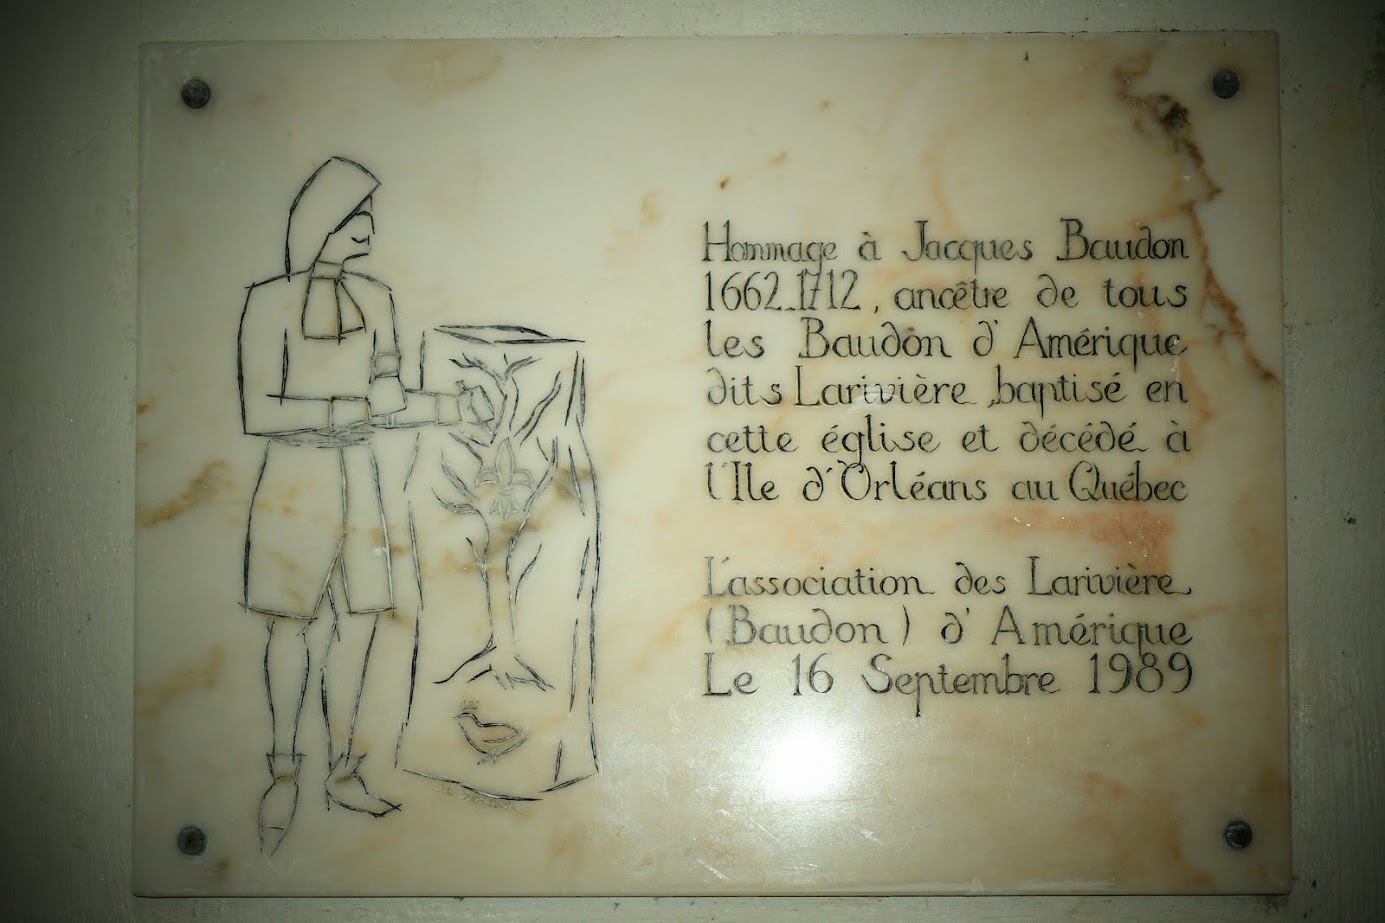 Hommage à Jacques Baudon
1662-1712, ancêtre de tous
les Baudon d'Amérique
dits Larivière, baptisé en
cette église et décédé à
l'Ile d'Orléans au Québec
L'association des Larivière
(Baudon) d'Amérique
Le 16 Septembre 1989